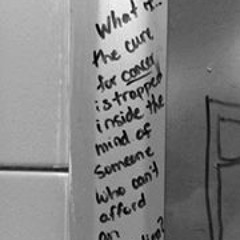 What if...
the cure
for cancer
is trapped
inside the
mind of
someone
who can't
afford
an